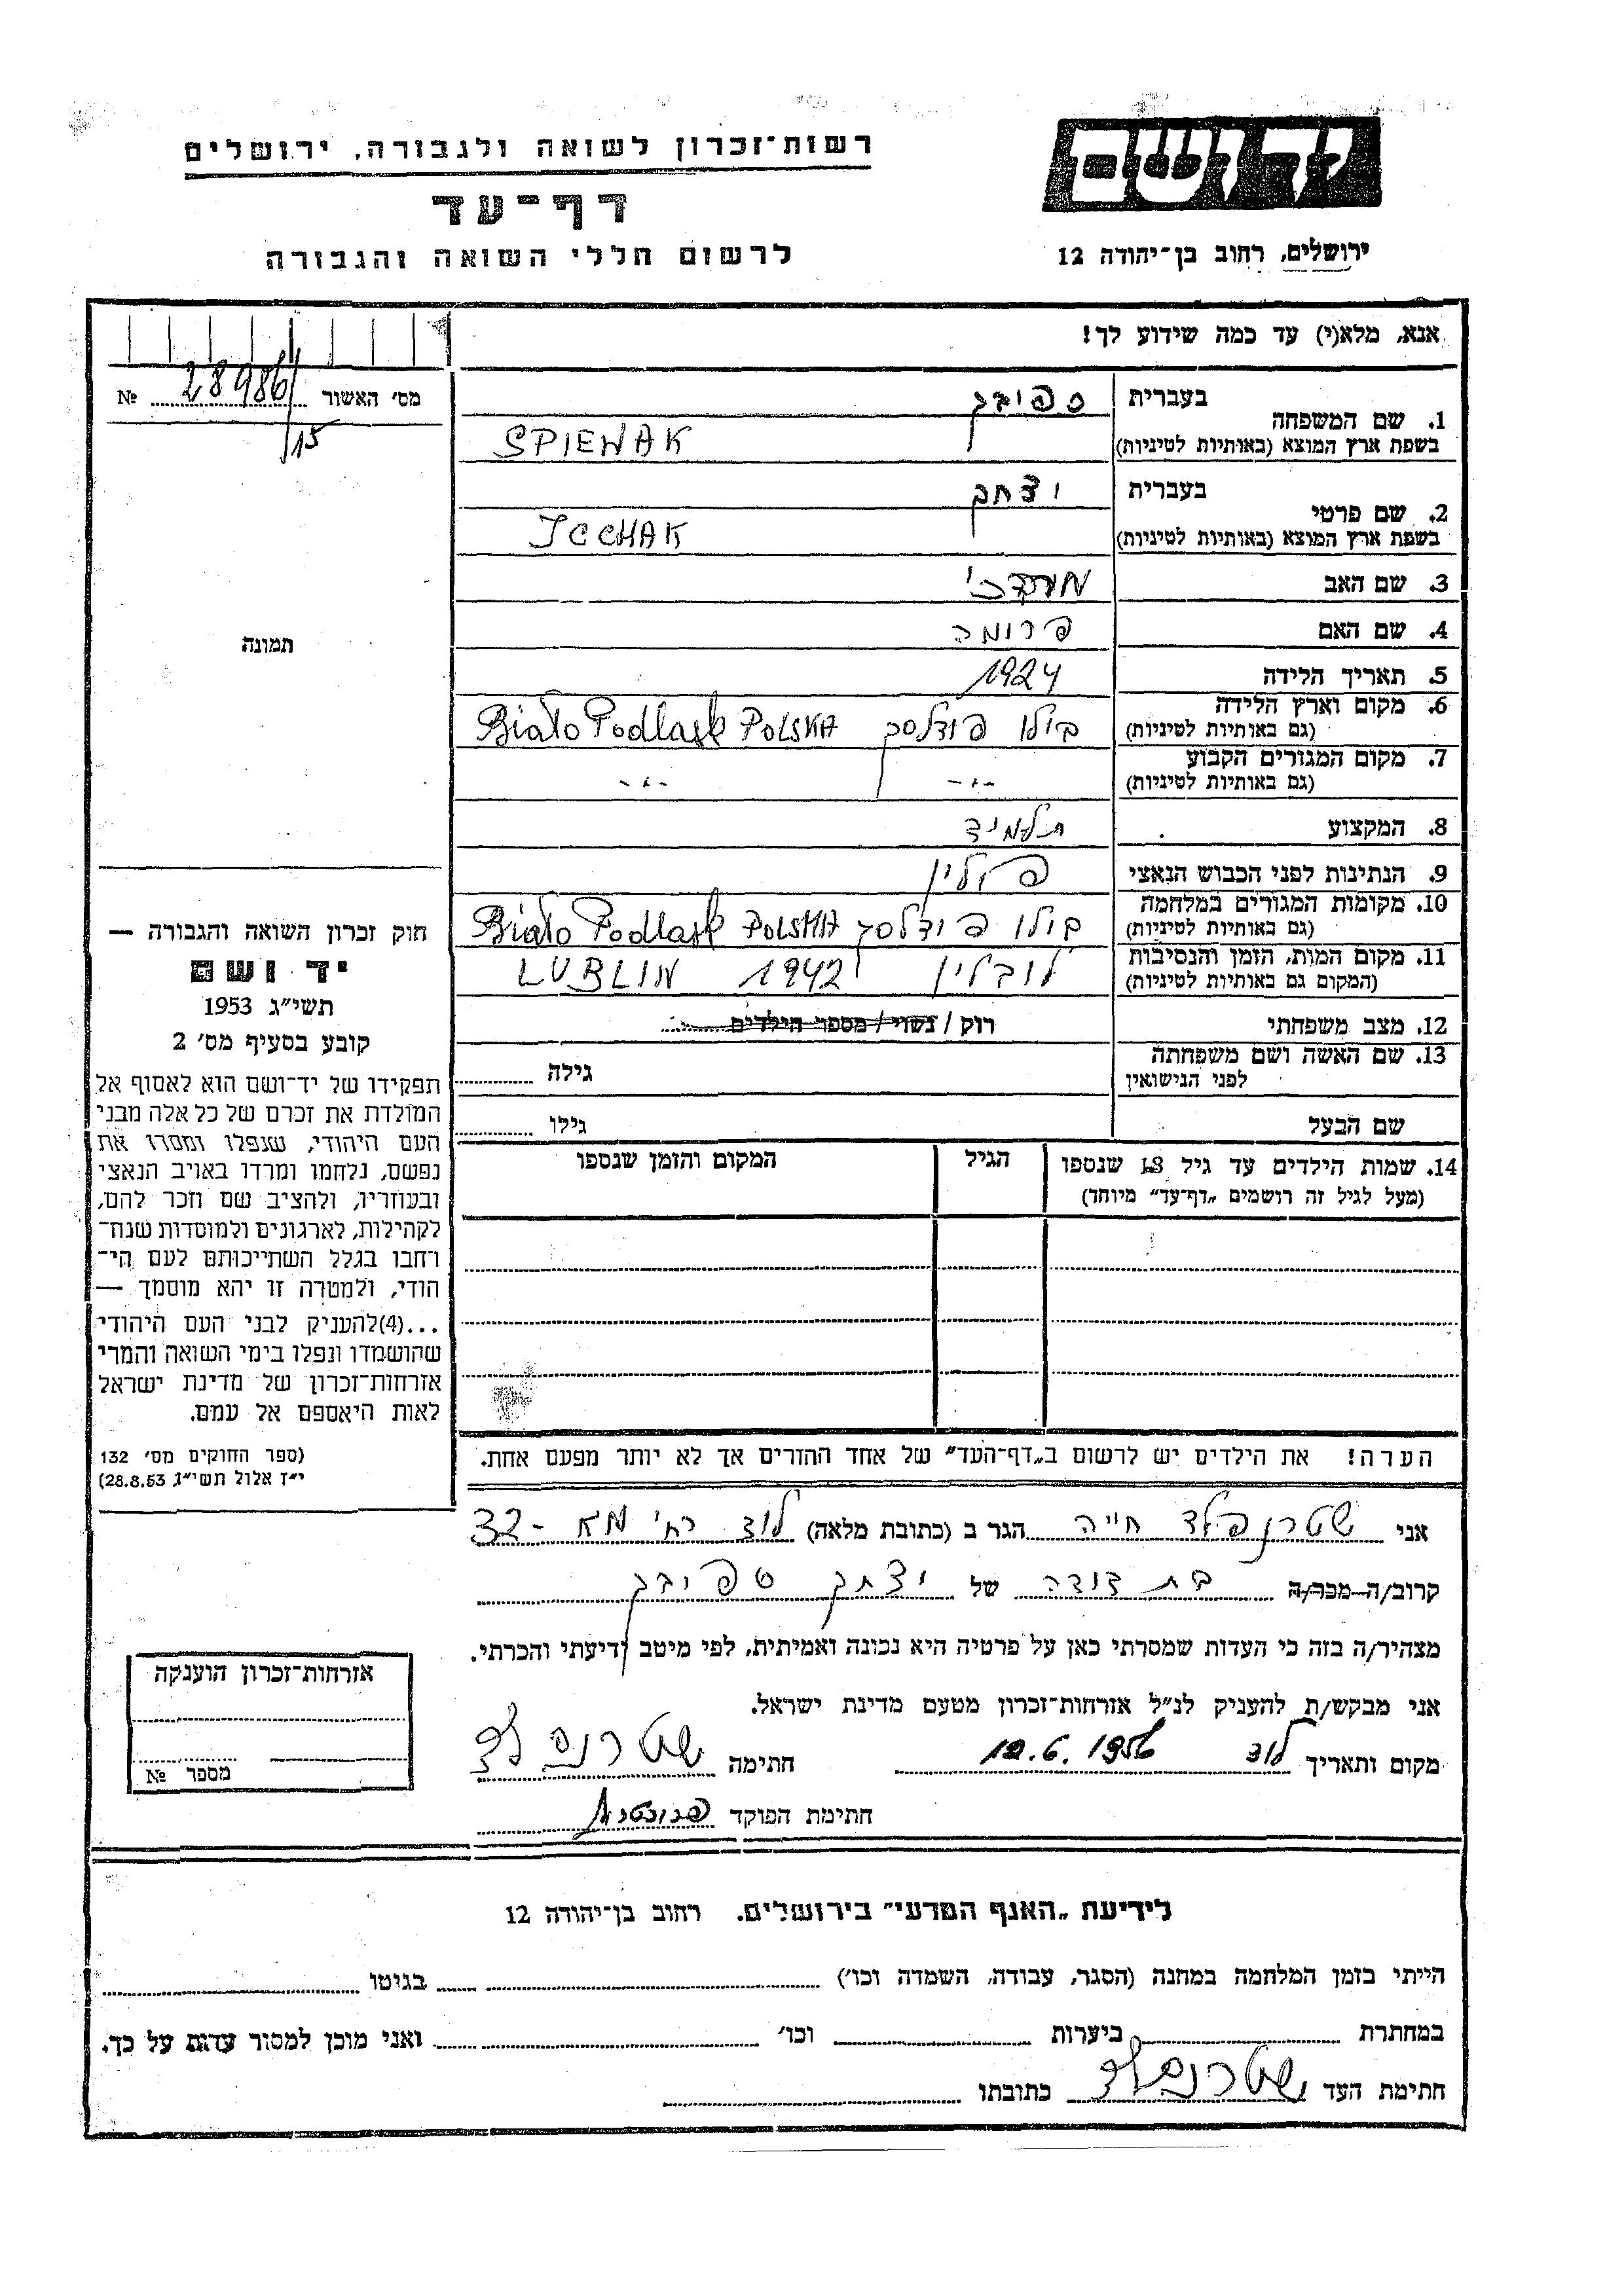 רשות־זכרון לשואה ולגבורה, ירושלים
דף־עד
לרשום חללי השואה והגבורה
יד ושם
ירושלים, רחוב בן־יהודה 12
אנא, מלא(י) עד כמה שידוע לך!
מס' האשור 28986/15 №
1. שם המשפחה בעברית ספיבק
בשפת ארץ המוצא (באותיות לטיניות) SPIEWAK
2. שם פרטי בעברית יצחק
בשפת ארץ המוצא (באותיות לטיניות) ICCHAK
3. שם האב מורדכי
4. שם האם פרומה
5. תאריך הלידה 1924
6. מקום וארץ הלידה (גם באותיות לטיניות) בילו פודלסק Biało Podlask POLSKA
7. מקום המגורים הקבוע (גם באותיות לטיניות) -״- -״-
8. המקצוע תלמיד
9. הנתינות לפני הכבוש הנאצי פולין
10. מקומות המגורים במלחמה (גם באותיות לטיניות) בילו פודלסק Biało Podlask POLSKA
11. מקום המות, הזמן והנסיבות (המקום גם באותיות לטיניות) לובלין 1942 LUBLIN
12. מצב משפחתי רוק / נשוי / מספר הילדים
13. שם האשה ושם משפחתה לפני הנישואין גילה
שם הבעל גילו
14. שמות הילדים עד גיל 18 שנספו הגיל המקום והזמן שנספו
(מעל לגיל זה רושמים „דף־עד" מיוחד)
הערה! את הילדים יש לרשום ב„דף־העד" של אחד ההורים אך לא יותר מפעם אחת.
תמונה
חוק זכרון השואה והגבורה —
יד ושם
תשי"ג 1953
קובע בסעיף מס' 2
תפקידו של יד־ושם הוא לאסוף אל
המולדת את זכרם של כל אלה מבני
העם היהודי, שנפלו ומסרו את
נפשם, נלחמו ומרדו באויב הנאצי
ובעוזריו, ולהציב שם וזכר להם,
לקהילות, לארגונים ולמוסדות שנח־
רחבו בגלל השתייכותם לעם הי־
הודי, ולמטרה זו יהא מוסמך —
...(4)להעניק לבני העם היהודי
שהושמדו ונפלו בימי השואה והמרי
אזרחות־זכרון של מדינת ישראל
לאות היאספם אל עמם.
(ספר החוקים מס' 132
י"ז אלול תשי"ג 28.8.53)
אני שטרנפלד חייה הגר ב (כתובת מלאה) לוד רח' מא - 32
קרוב/ה מכר/ה בת דודה של יצחק ספיבק
מצהיר/ה בזה כי העדות שמסרתי כאן על פרטיה היא נכונה ואמיתית, לפי מיטב ידיעתי והכרתי.
אני מבקש/ת להעניק לנ"ל אזרחות־זכרון מטעם מדינת ישראל.
מקום ותאריך לוד 12.6.1956 חתימה שטרנפלד
חתימת הפוקד
אזרחות־זכרון הוענקה
מספר №
לידיעת „האגף המדעי" בירושלים. רחוב בן־יהודה 12
הייתי בזמן המלחמה במחנה (הסגר, עבודה, השמדה וכו') בגיטו
במחתרת ביערות וכו' ואני מוכן למסור עדות על כך.
חתימת העד שטרנפלד כתובתו